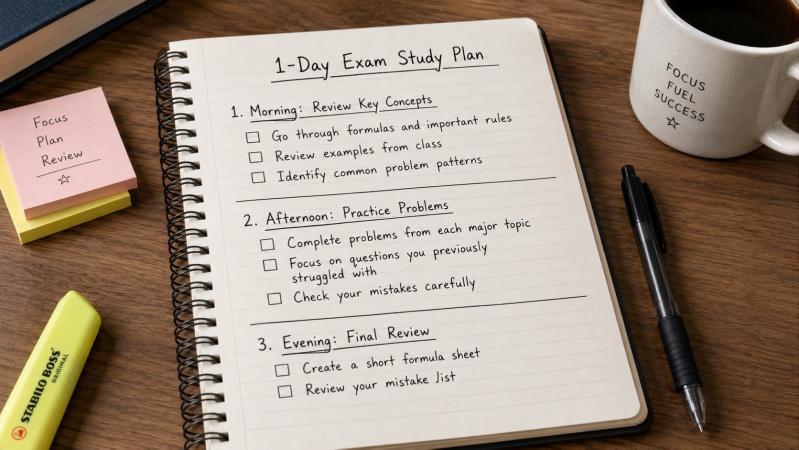 1-Day Exam Study Plan
1. Morning: Review Key Concepts
Go through formulas and important rules
Review examples from class
Identify common problem patterns
2. Afternoon: Practice Problems
Complete problems from each major topic
Focus on questions you previously
struggled with
Check your mistakes carefully
3. Evening: Final Review
Create a short formula sheet
Review your mistake list
Focus
Plan
Review
FOCUS
FUEL
SUCCESS
STABILO BOSS
ORIGINAL